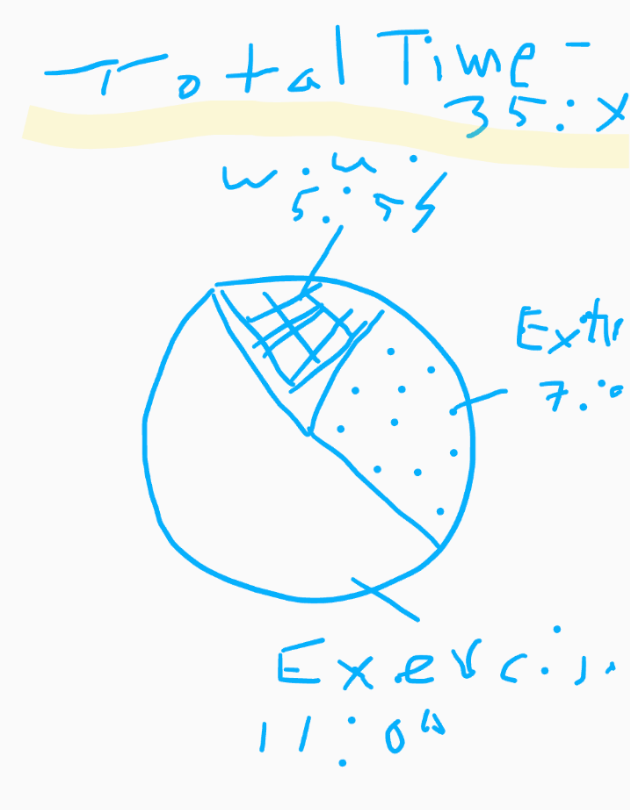 Total Time -
35:x
w.u.
5:54
Ext
7:0
Exercis
11:00